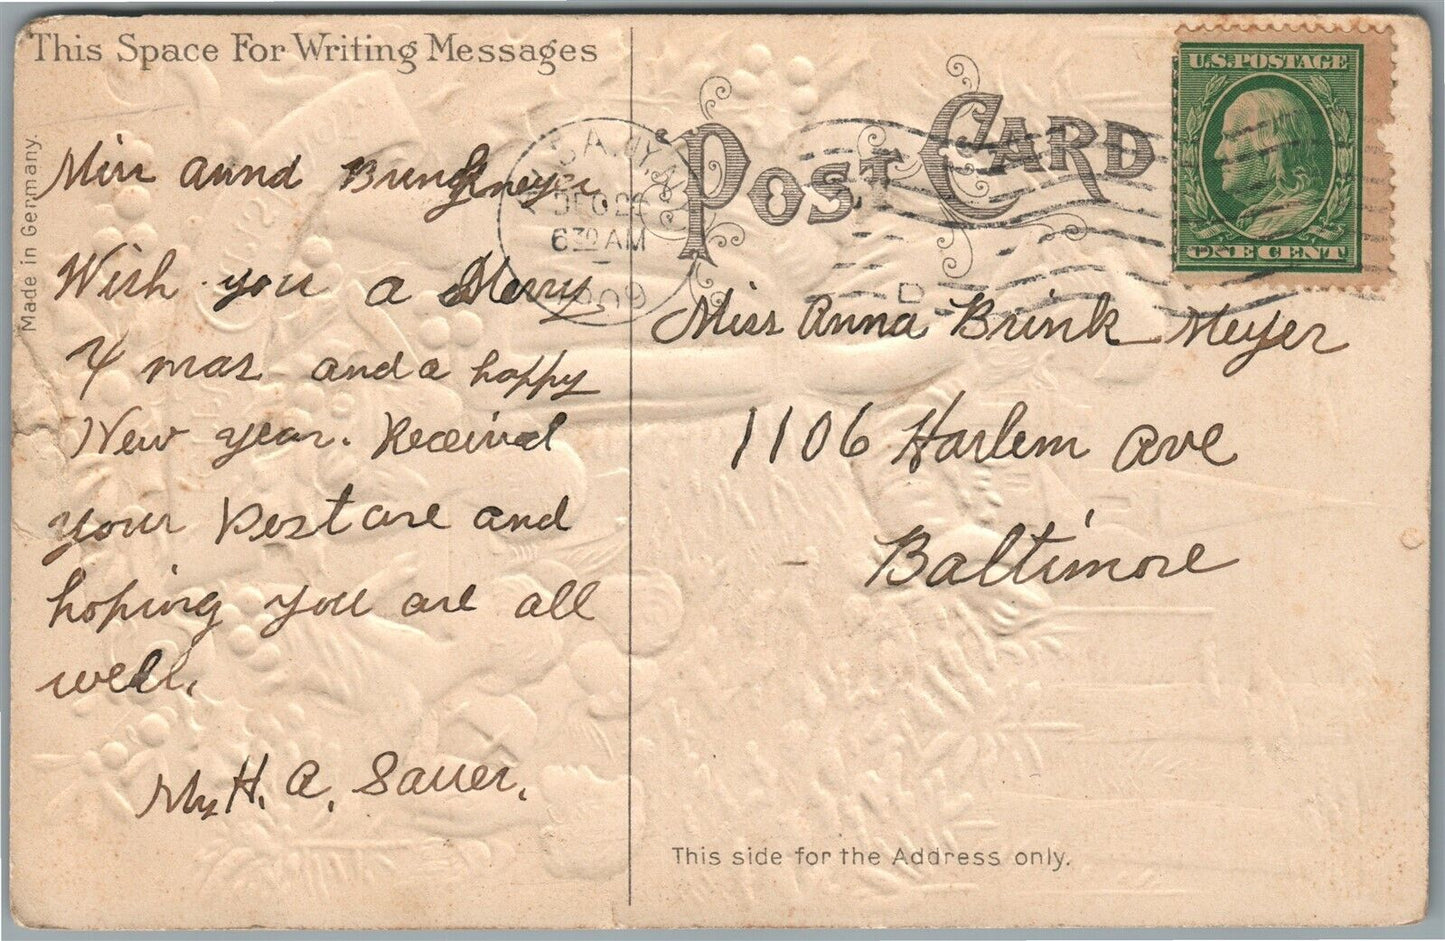 This Space For Writing Messages
Made in Germany.
POST CARD
U.S. POSTAGE
ONE CENT
DEC 2
6 30 AM
1909
D
Miss Annd
Wish you a Merry
X mas and a happy
New year. Received
your Postcare and
hoping you are all
well.
H. A. Sauer.
Miss Anna Brink Meyer
1106 Harlem Ave
Baltimore
This side for the Address only.